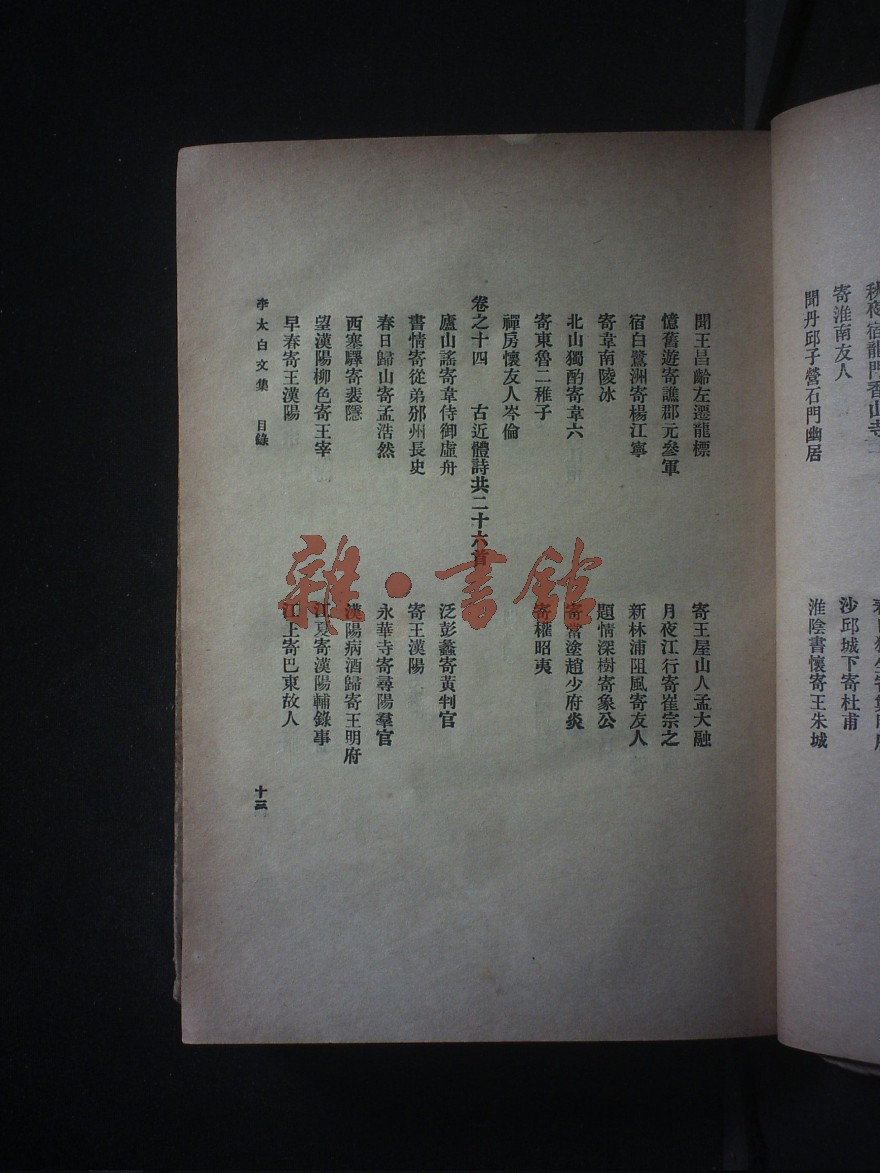 秋夜宿龍門香山寺
寄淮南友人
沙邱城下寄杜甫
聞丹邱子營石門幽居
淮陰書懷寄王朱城
聞王昌齡左遷龍標
寄王屋山人孟大融
憶舊遊寄譙郡元參軍
月夜江行寄崔宗之
宿白鷺洲寄楊江寧
新林浦阻風寄友人
寄韋南陵冰
題情深樹寄象公
北山獨酌寄韋六
寄當塗趙少府炎
寄東魯二稚子
寄權昭夷
禪房懷友人岑倫
卷之十四 古近體詩共二十六首
廬山謠寄韋侍御虛舟
泛彭蠡寄黃判官
書情寄從弟邠州長史
寄王漢陽
春日歸山寄孟浩然
永華寺寄尋陽羣官
西塞驛寄裴隱
漢陽病酒歸寄王明府
望漢陽柳色寄王宰
江夏寄漢陽輔錄事
早春寄王漢陽
江上寄巴東故人
李太白文集 目錄
十三
雜·書館